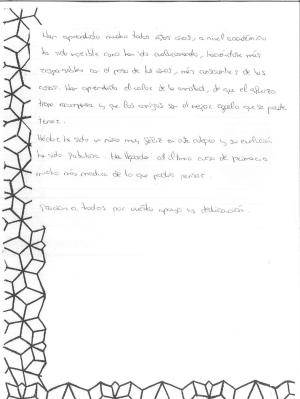 Han aprendido mucho todos estos años, a nivel académico
ha sido increíble como han ido evolucionando, haciéndose más
responsables con el paso de los años, más conscientes de las
cosas. Han aprendido el valor de la amistad, de que el esfuerzo
tiene recompensa y que los amigos son el mejor regalo que se puede
tener.
Héctor ha sido un niño muy feliz en este colegio y su evolución
ha sido fabulosa. Ha llegado al último curso de primaria
mucho más maduro de lo que podía pensar.
Gracias a todos por vuestro apoyo y dedicación.